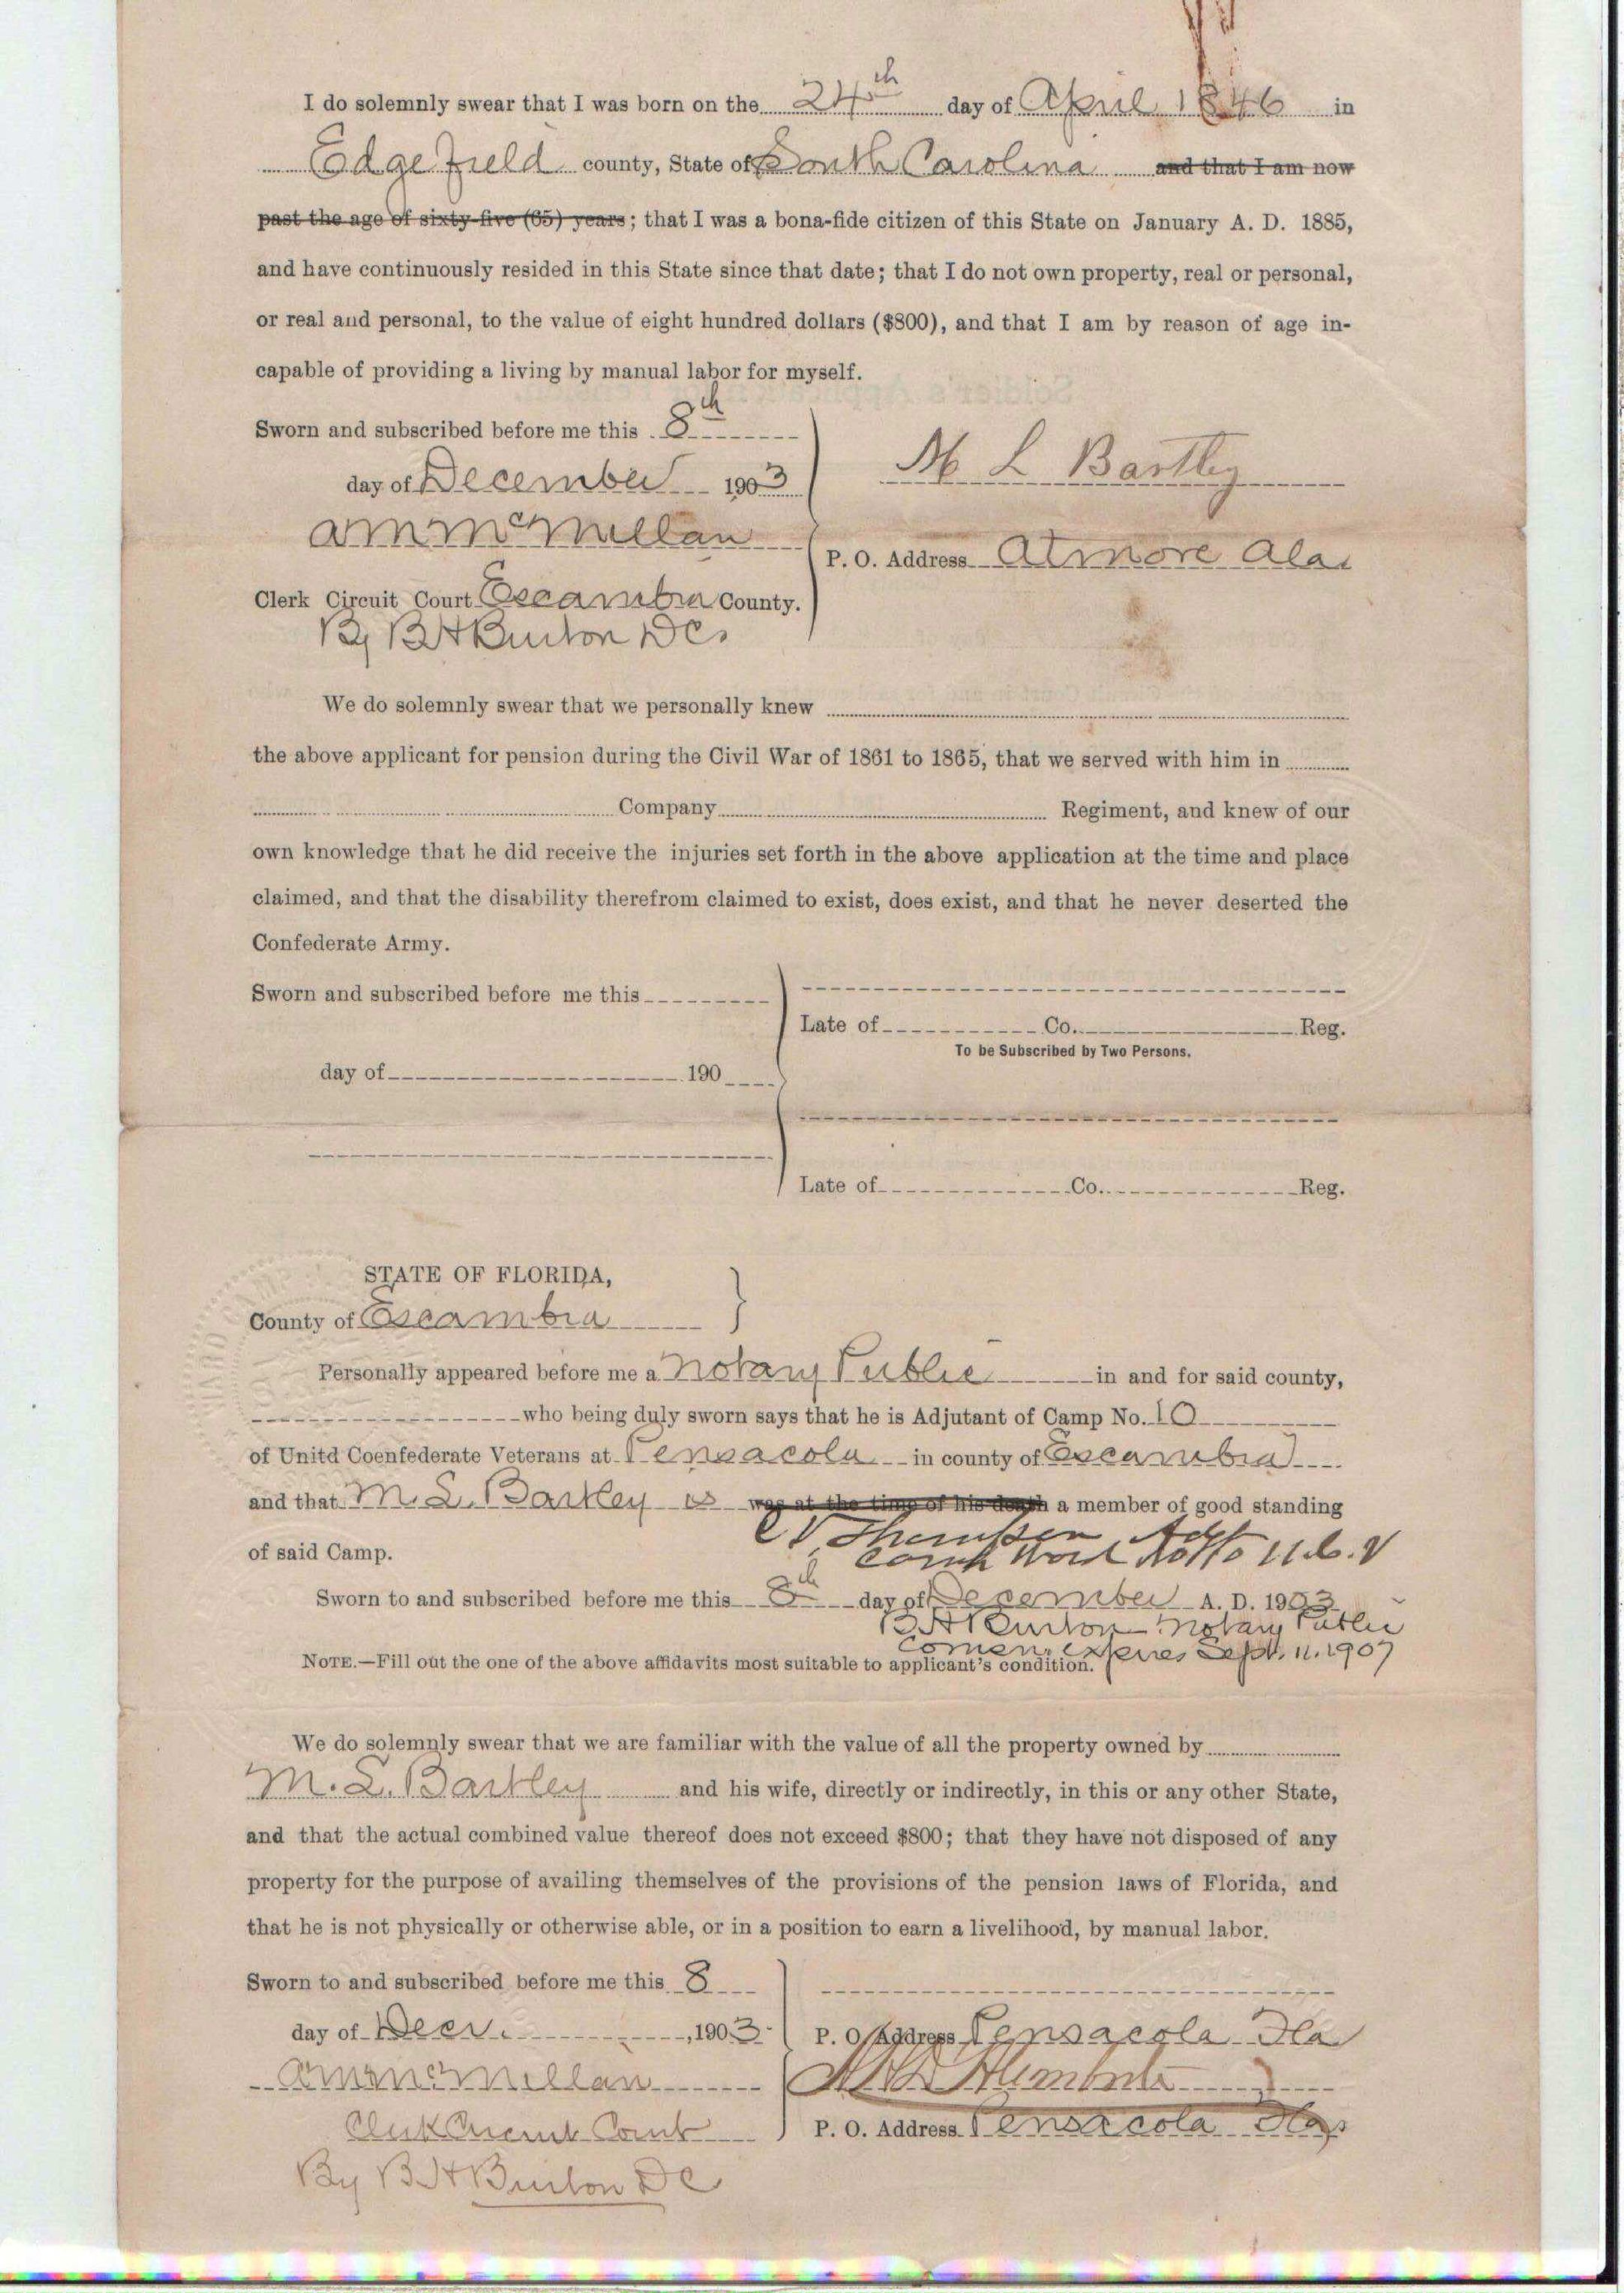 I do solemnly swear that I was born on the 24th day of April 1846 in
Edgefield county, State of South Carolina and that I am now
past the age of sixty-five (65) years; that I was a bona-fide citizen of this State on January A. D. 1885,
and have continuously resided in this State since that date; that I do not own property, real or personal,
or real and personal, to the value of eight hundred dollars ($800), and that I am by reason of age in-
capable of providing a living by manual labor for myself.
Sworn and subscribed before me this 8th
day of December 1903
M L Bartley
A M McMillan
P. O. Address Atmore Ala.
Clerk Circuit Court Escambia County.
By B H Burton DC.
We do solemnly swear that we personally knew
the above applicant for pension during the Civil War of 1861 to 1865, that we served with him in
Company Regiment, and knew of our
own knowledge that he did receive the injuries set forth in the above application at the time and place
claimed, and that the disability therefrom claimed to exist, does exist, and that he never deserted the
Confederate Army.
Sworn and subscribed before me this
Late of Co. Reg.
To be Subscribed by Two Persons.
day of 190
Late of Co. Reg.
STATE OF FLORIDA,
County of Escambia
Personally appeared before me a Notary Public in and for said county,
who being duly sworn says that he is Adjutant of Camp No. 10
of Unitd Coenfederate Veterans at Pensacola in county of Escambia
and that M. L. Bartley is was at the time of his death a member of good standing
C V Thompson Adjt
of said Camp.
Camp Ward No 10 U.C.V
Sworn to and subscribed before me this 8th day of December A. D. 1903
B H Burton Notary Public
Comsn. expires Sept. 11. 1907
NOTE.—Fill out the one of the above affidavits most suitable to applicant's condition.
We do solemnly swear that we are familiar with the value of all the property owned by
M. L. Bartley and his wife, directly or indirectly, in this or any other State,
and that the actual combined value thereof does not exceed $800; that they have not disposed of any
property for the purpose of availing themselves of the provisions of the pension laws of Florida, and
that he is not physically or otherwise able, or in a position to earn a livelihood, by manual labor.
Sworn to and subscribed before me this 8
day of Decr. , 1903
P. O. Address Pensacola Fla
A M McMillan
Clerk Circuit Court
P. O. Address Pensacola Fla
By B H Burton DC